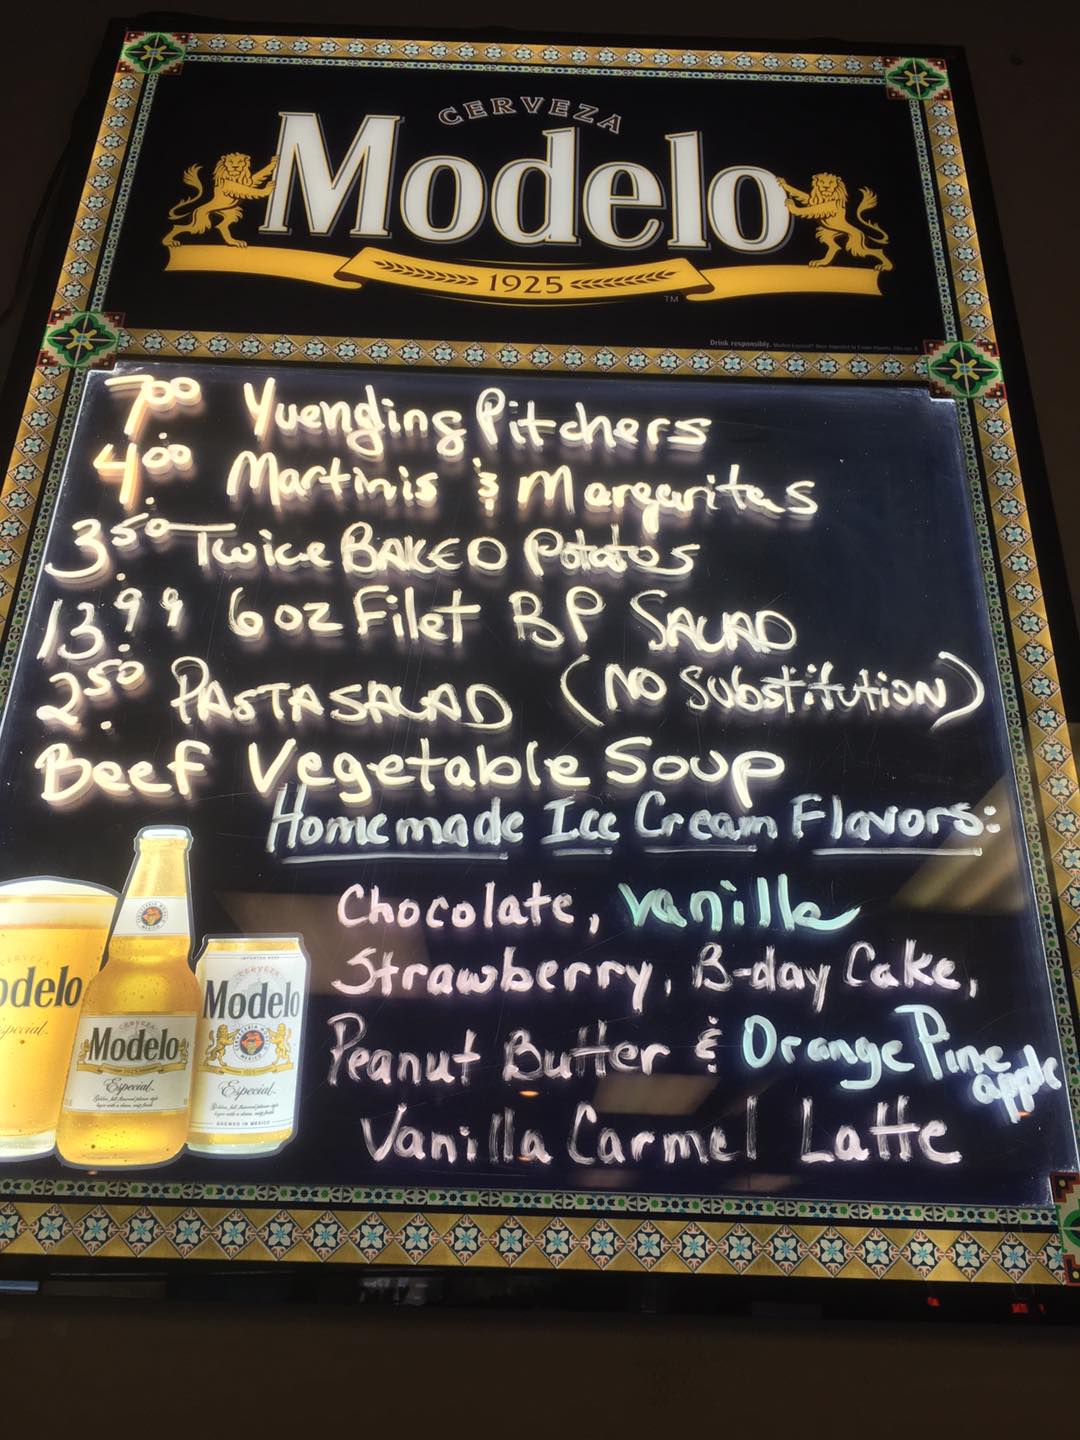 CERVEZA
Modelo
1925
TM
Drink responsibly.
7.00 Yuengling Pitchers
4.00 Martinis & Margaritas
3.50 Twice BAKED Potatos
13.99 6oz Filet BP SALAD
2.50 PASTA SALAD (NO Substitution)
Beef Vegetable Soup
Homemade Ice Cream Flavors:
Chocolate, Vanilla
Strawberry, B-day Cake,
Peanut Butter & Orange Pine
apple
Vanilla Carmel Latte
CERVEZA
odelo
special
CERVEZA
Modelo
Especial
CERVEZA
Modelo
Especial
BREWED IN MEXICO